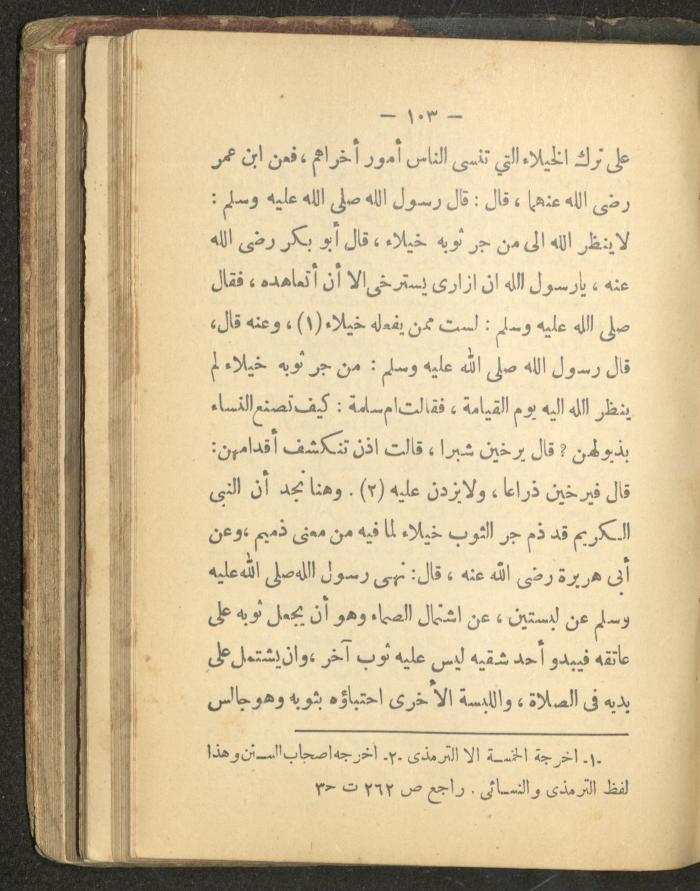 — ١٠٣ —
على ترك الخيلاء التي تنسى الناس أمور أخراهم ، فعن ابن عمر
رضى الله عنهما ، قال : قال رسول الله صلى الله عليه وسلم :
لا ينظر الله الى من جر ثوبه خيلاء ، قال أبو بكر رضى الله
عنه ، يارسول الله ان ازارى يسترخى الا أن أتعاهده ، فقال
صلى الله عليه وسلم : لست ممن يفعله خيلاء (١) ، وعنه قال،
قال رسول الله صلى الله عليه وسلم : من جر ثوبه خيلاء لم
ينظر الله اليه يوم القيامة ، فقالت ام سلمة : كيف تصنع النساء
بذيولهن ? قال يرخين شبرا ، قالت اذن تنكشف أقدامهن:
قال فيرخين ذراعا ، ولا يزدن عليه (٢) . وهنا نجد أن النبى
الكريم قد ذم جر الثوب خيلاء لما فيه من معنى ذميم ،وعن
أبى هريرة رضى الله عنه ، قال: نهى رسول الله صلى الله عليه
وسلم عن لبستين ، عن اشتمال الصماء وهو أن يجعل ثوبه على
عاتقه فيبدو أحد شقيه ليس عليه ثوب آخر ،وان يشتمل على
يديه فى الصلاة ، واللبسة الأخرى احتباؤه بثوبه وهو جالس
-١- اخرجة الخمسة الا الترمذى -٢- اخرجه اصحاب السنن وهذا
لفظ الترمذى والنسائى . راجع ص ٢٦٢ ت ح٣